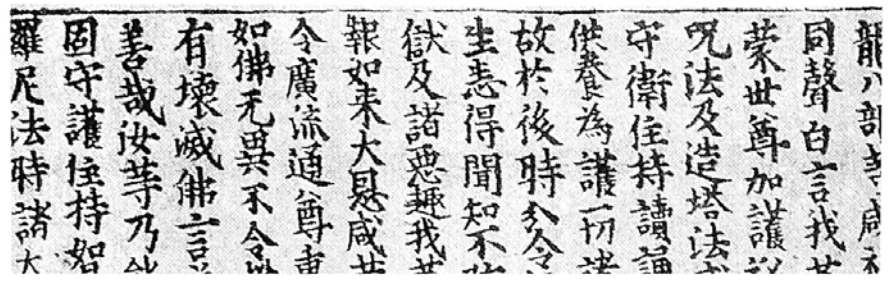 龍八部等咸
同聲白言我等
蒙世尊加護
呪法及造塔法
守衛住持讀誦
供養為護一切諸
故於後時分令
生悉得聞知不
獄及諸惡趣我等
報如来大恩咸共
令廣流通尊重
如佛无異不令
有壞滅佛言
善哉汝等乃能
固守護住持如
羅尼法時諸大